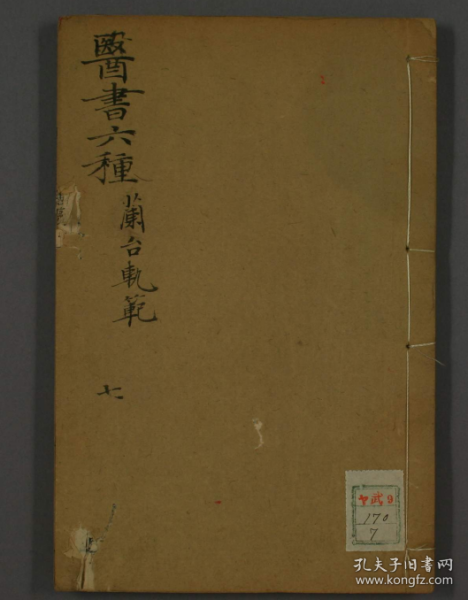 醫書六種
蘭台軌範
七
ヤ武9
170
7
孔夫子旧书网
www.kongfz.com